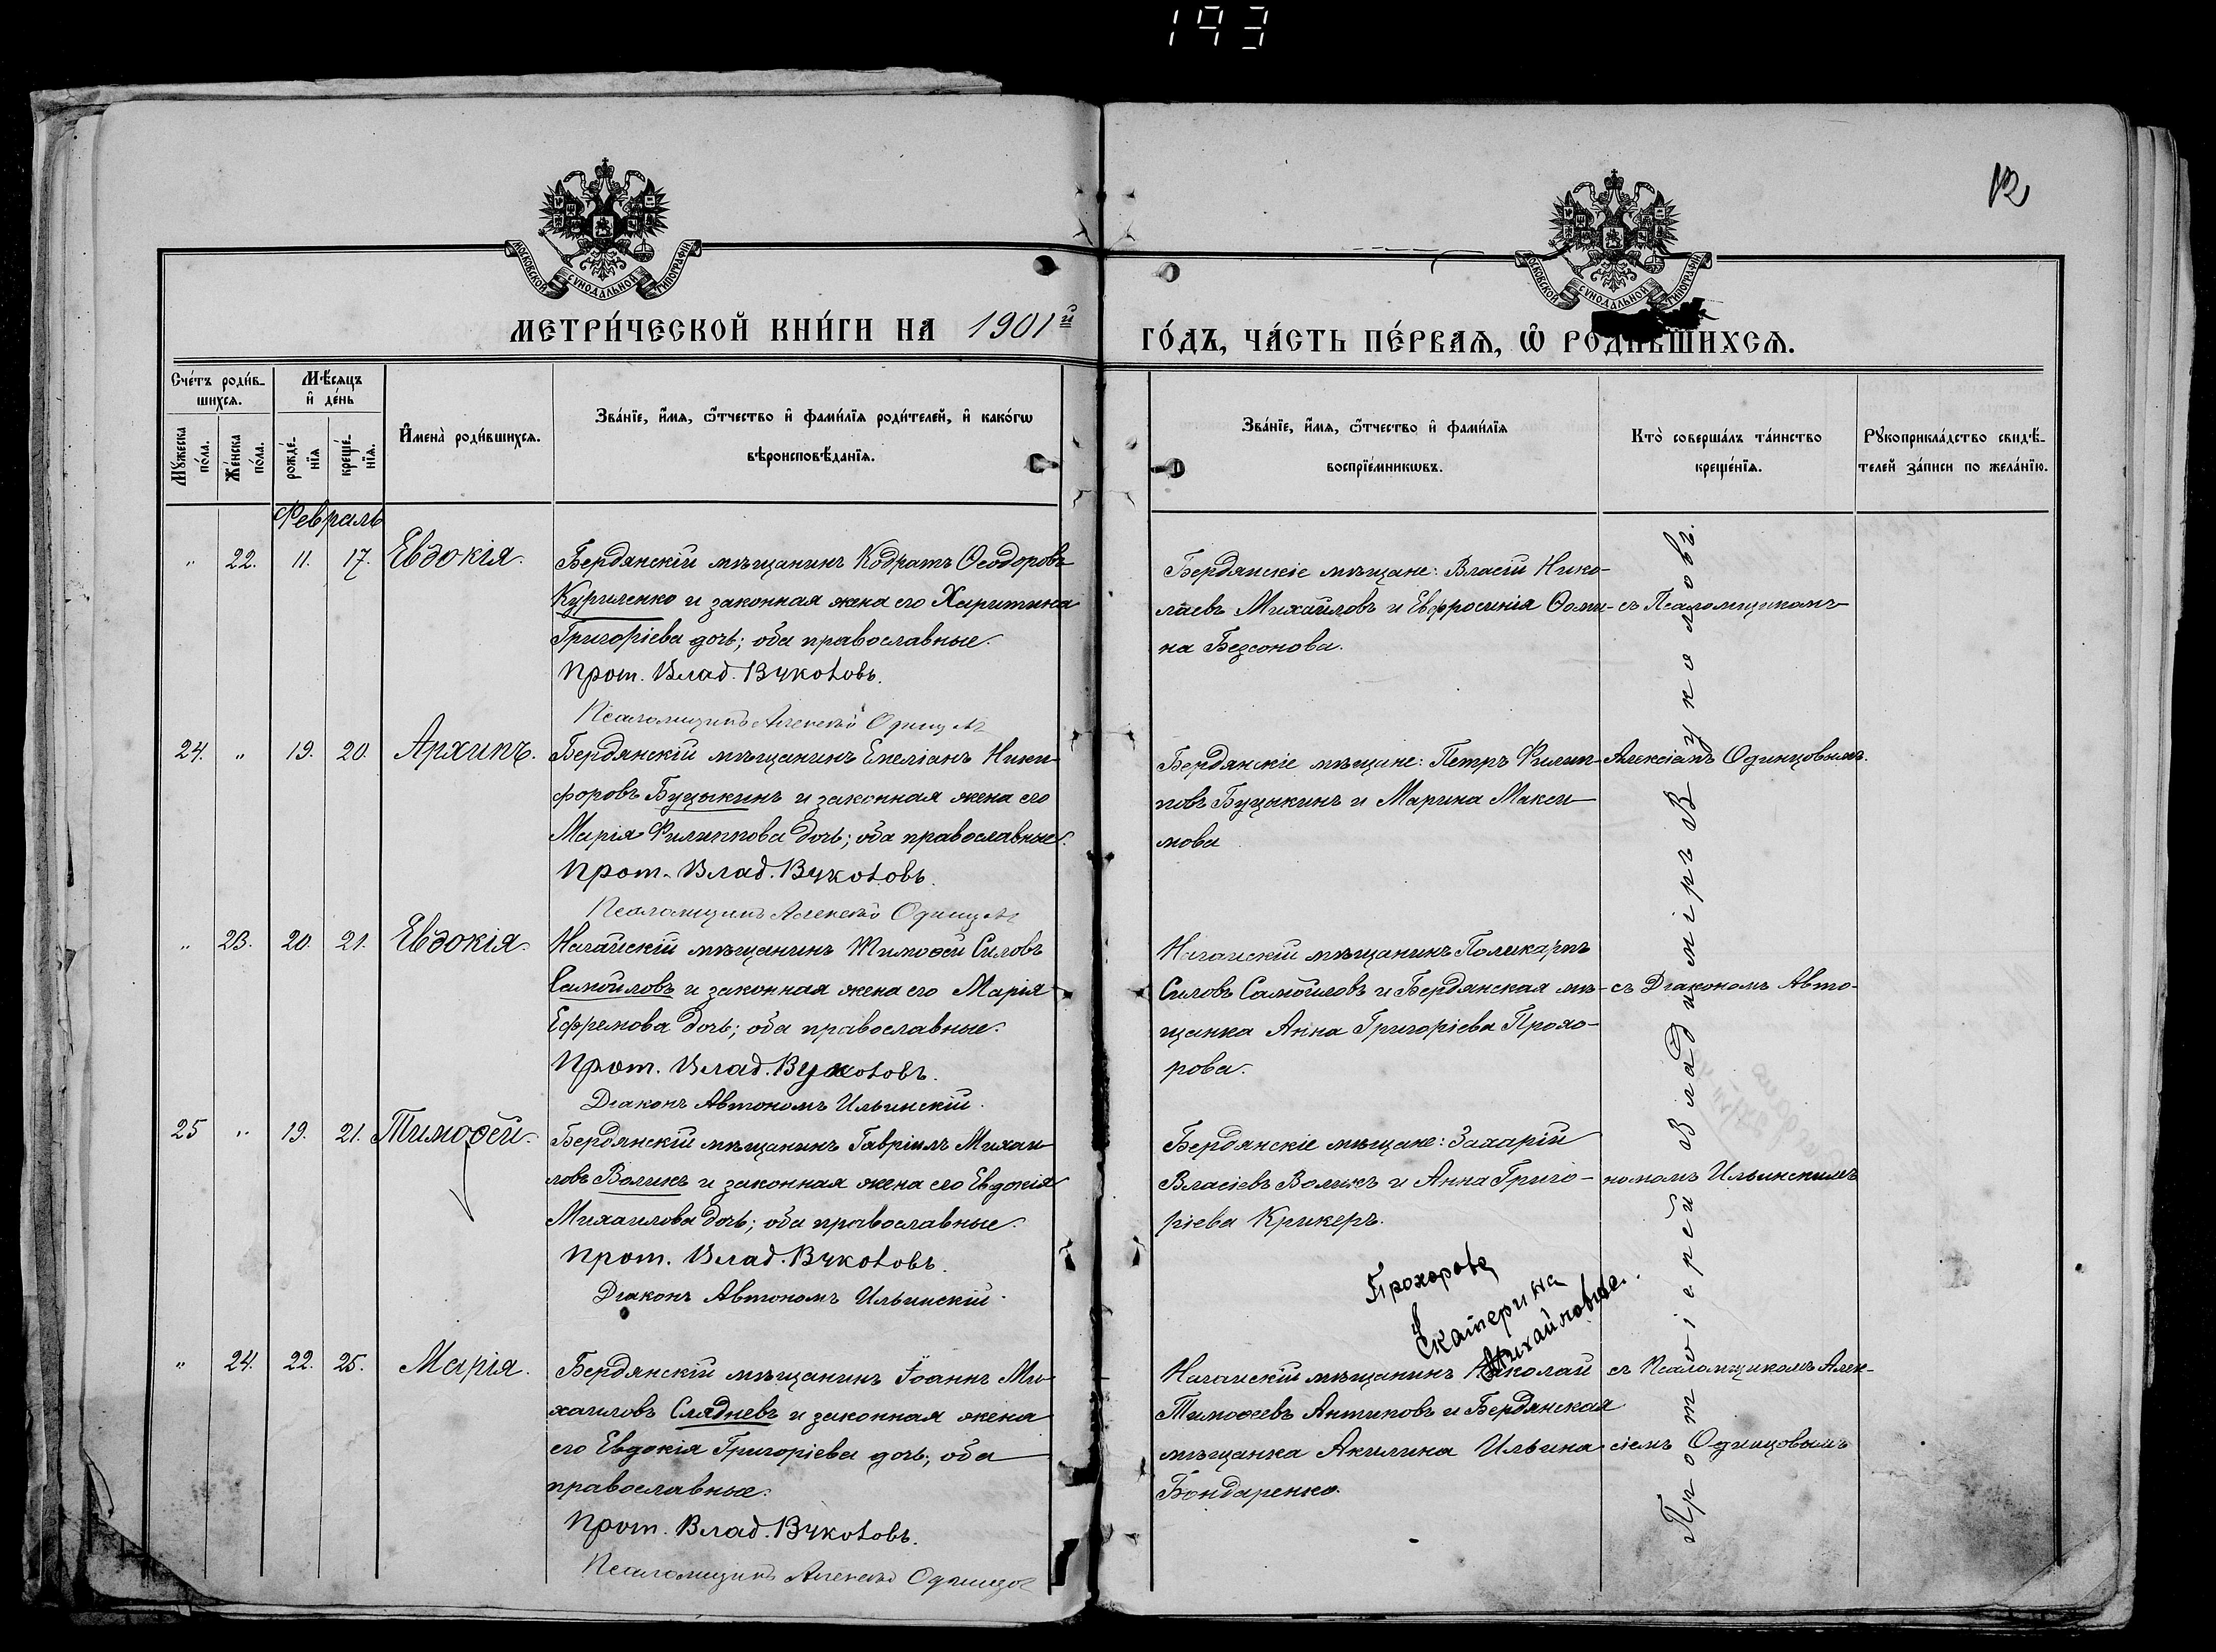 193
12
МОСКОВСКОЙ СѴНОДАЛЬНОЙ ТИПОГРАФІИ
МОСКОВСКОЙ СѴНОДАЛЬНОЙ ТИПОГРАФІИ
МЕТРИ́ЧЕСКОЙ КНИ́ГИ НА 1901й
ГО́ДЪ, ЧА́СТЬ ПЕ́РВАЯ, Ѡ РОДИ́ВШИХСЯ.
Сче́тъ роди́в-
шихся.
Мѣ́сяцъ
и҆ де́нь
Мꙋ́жеска
по́ла.
Же́нска
по́ла.
рожде́-
нїя
креще́-
нїя.
И҆мена̀ роди́вшихся.
Зва́нїе, и҆́мя, ѻ҆́тчество и҆ фами́лїя роди́телей, и҆ како́гѡ
вѣроисповѣ́данїя.
Зва́нїе, и҆́мя, ѻ҆́тчество и҆ фами́лїя
воспрїе́мникѡвъ.
Кто̀ соверша́лъ та́инство
креще́нїя.
Рꙋкоприкла́дство свидѣ́-
телей за́писи по жела́нїю.
Февраль
" 22. 11. 17. Евдокія.
Бердянскій мѣщанинъ Кодратъ Ѳеодоровъ
Куриленко и законная жена его Харитина
Григоріева дочь; оба православные.
Прот. Влад. Вуколовъ.
Псаломщикъ Алексѣй Одинц
Бердянскіе мѣщане: Власій Нико-
лаевъ Михайловъ и Евфросинія Ѳоми-
на Безсонова.
съ Псаломщикомъ
24. " 19. 20. Архипъ.
Бердянскій мѣщанинъ Емеліанъ Ники-
форовъ Буцыкинъ и законная жена его
Марія Филиппова дочь; оба православные.
Прот. Влад. Вуколовъ.
Псаломщикъ Алексѣй Одинц
Бердянскіе мѣщане: Петръ Филип-
повъ Буцыкинъ и Марина Макси-
мова
Алексіемъ Одинцовымъ.
" 23. 20. 21. Евдокія.
Ногайскій мѣщанинъ Тимоѳей Силовъ
Самойловъ и законная жена его Марія
Ефремова дочь; оба православные.
Прот. Влад. Вуколовъ.
Діаконъ Автономъ Ильинскій.
Ногайскій мѣщанинъ Поликарпъ
Силовъ Самойловъ и Бердянская мѣ-
щанка Анна Григоріева Прохо-
рова.
съ Діакономъ Авто-
25 " 19. 21. Тимоѳей.
Бердянскій мѣщанинъ Гавріилъ Михаи-
ловъ Воликъ и законная жена его Евдокія
Михаилова дочь; оба православные.
Прот. Влад. Вуколовъ.
Діаконъ Автономъ Ильинскій.
Бердянскіе мѣщане: Захарій
Власіевъ Воликъ и Анна Григо-
ріева Крикеръ.
номомъ Ильинскимъ
Прохорова
Екатерина
Михайловна.
" 24. 22. 25. Марія.
Бердянскій мѣщанинъ Іоаннъ Ми-
хаиловъ Слядневъ и законная жена
его Евдокія Григоріева дочь; оба
православные.
Прот. Влад. Вуколовъ.
Псаломщикъ Алексѣй Одинцов
Ногайскій мѣщанинъ Николай
Тимоѳеевъ Антиповъ и Бердянская
мѣщанка Акилина Ильина
Бондаренко.
съ Псаломщикомъ Алек-
сіемъ Одинцовымъ
Протоіерей Владиміръ Вуколовъ.